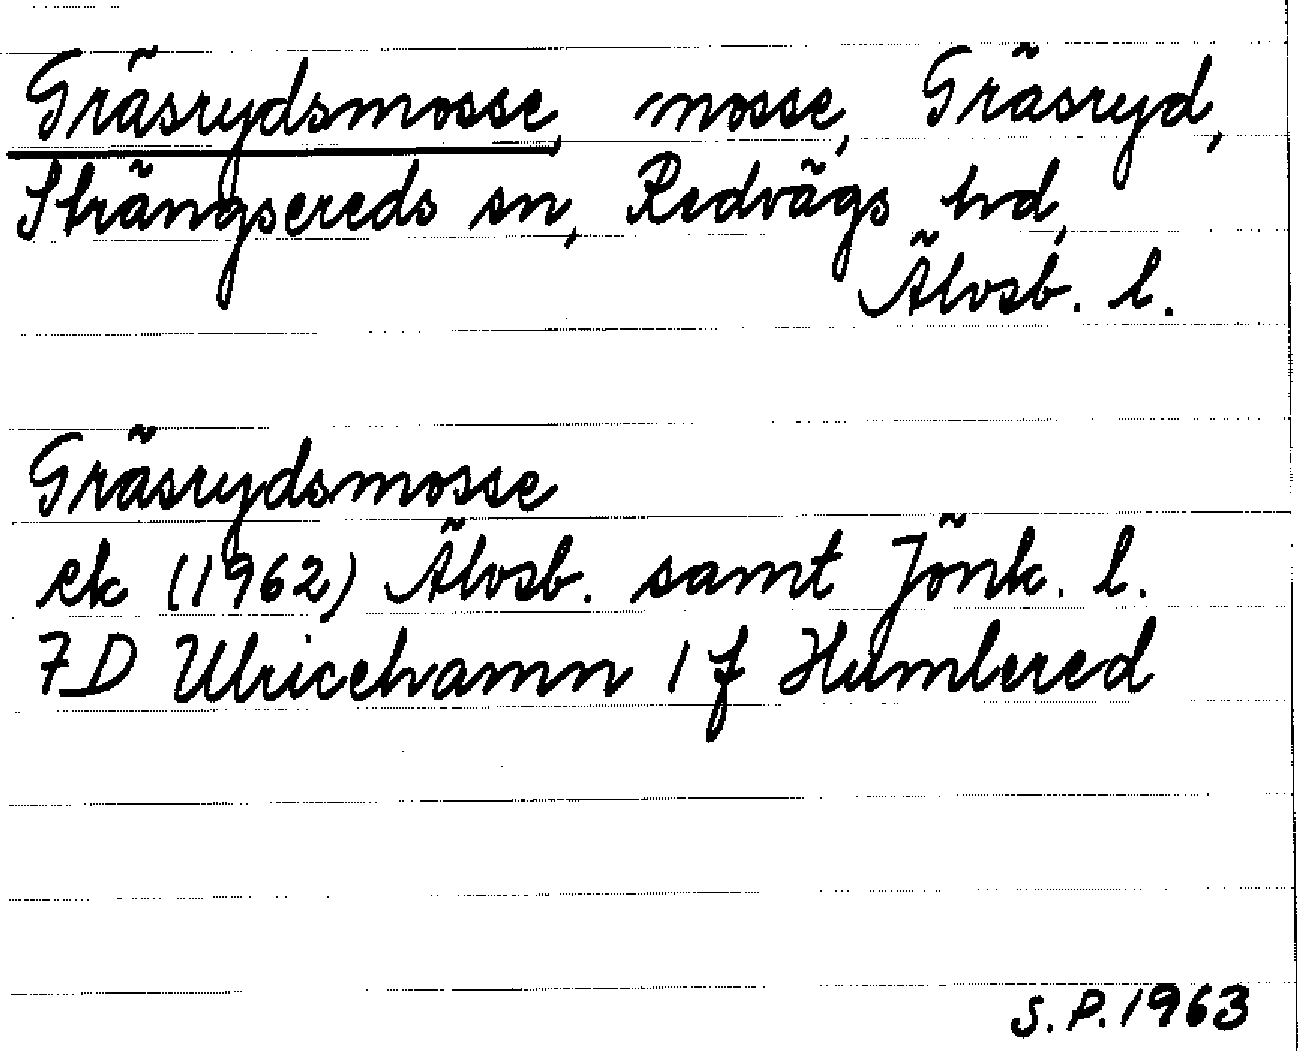 Gräsrydsmosse, mosse, Gräsryd,
Strängsereds sn, Redvägs hd,
Älvsb. l.
Gräsrydsmosse
ek (1962) Älvsb. samt Jönk. l.
7D Ulricehamn 1f Humlered
S.P. 1963